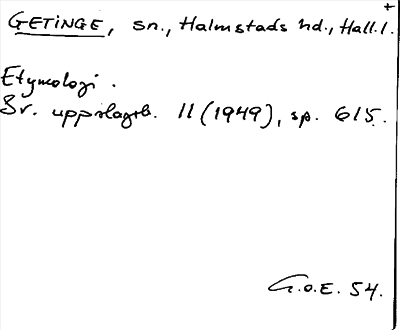 GETINGE, sn., Halmstads hd., Hall. l.
Etymologi.
Sv. uppslagsb. 11 (1949), sp. 615.
G.O.E. 54.